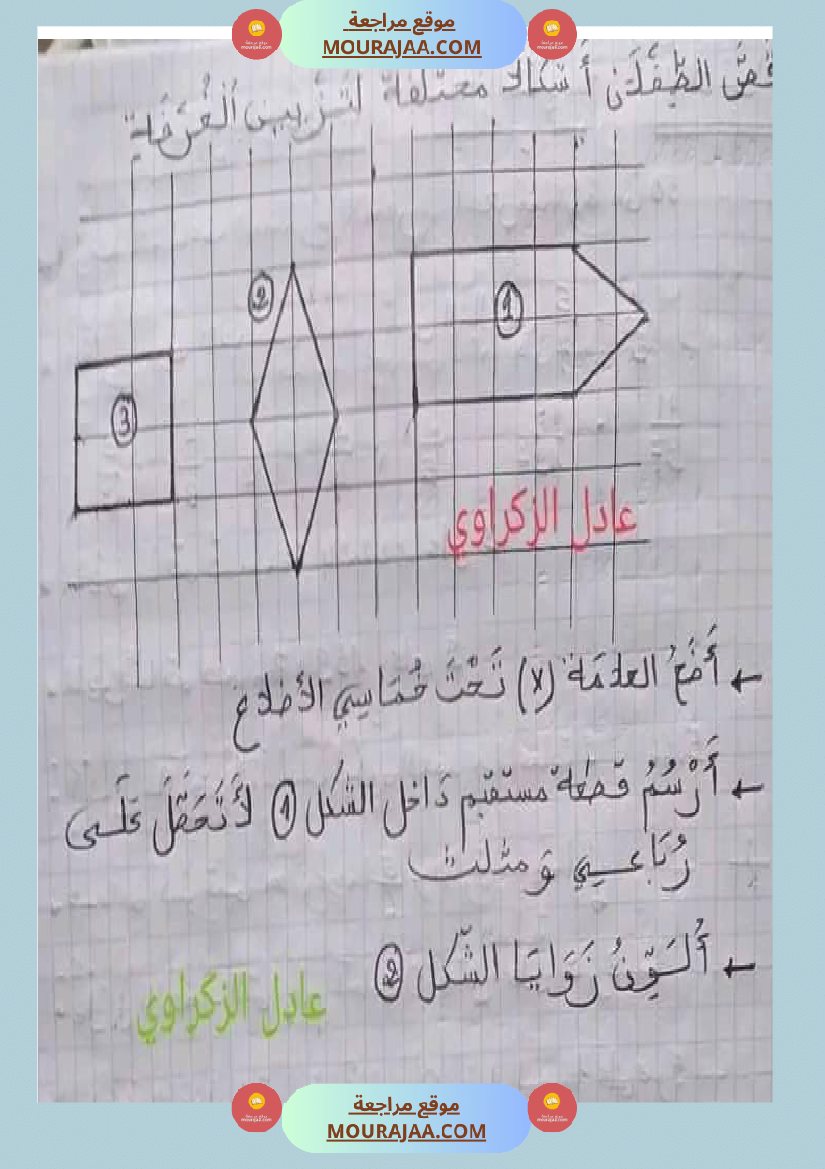 موقع مراجعة
MOURAJAA.COM
قصّ الطّفلان أشكالا مختلفة لتزيين الغرفة
1
2
3
عادل الزكراوي
← أَضَعُ العلامَة (x) تَحْتَ خُمَاسِي الأضلاع
← أَرْسُمُ قطعة مستقيم دَاخل الشكل 1 لأَتَحَصَّلَ عَلَى
رُبَاعِي وَ مثلث
← أُلَوِّنُ زَوَايَا الشّكل 2
عادل الزكراوي
موقع مراجعة
MOURAJAA.COM